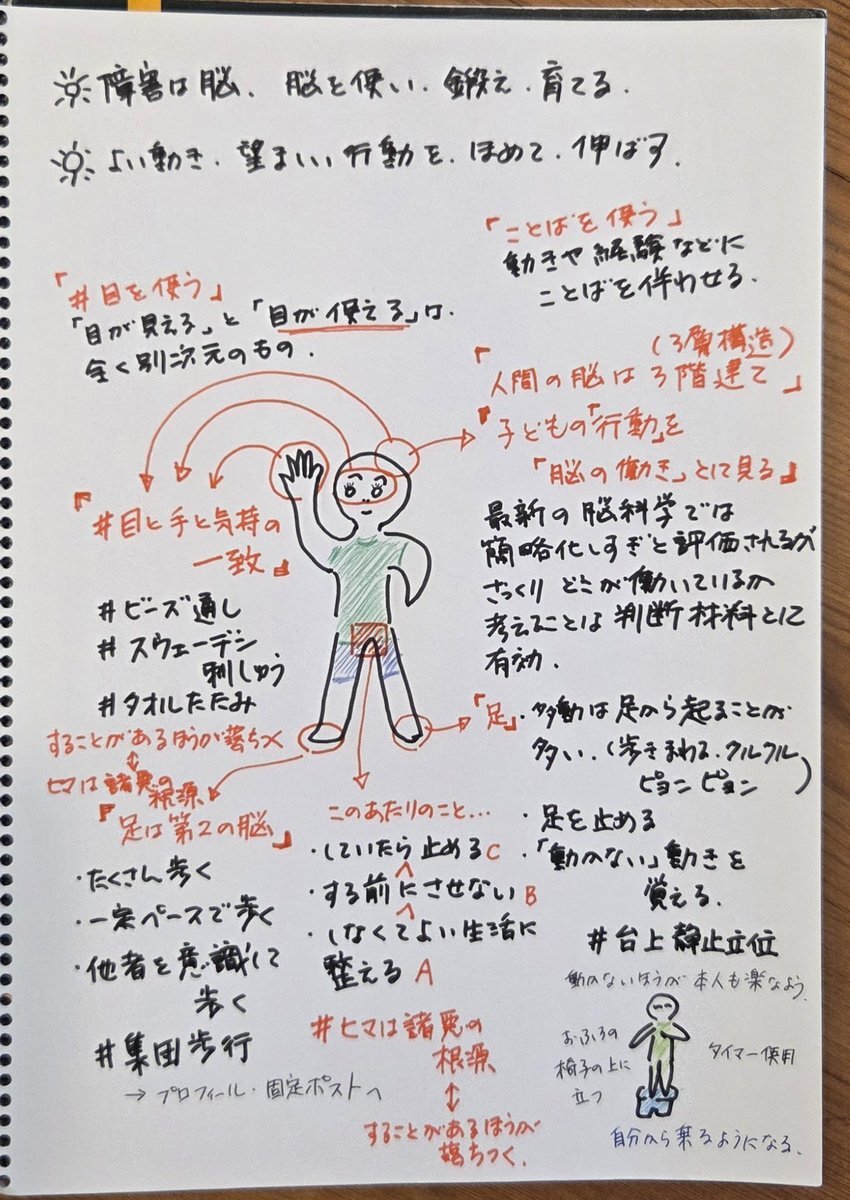 障害は脳、脳を使い、鍛え、育てる。
よい動き、望ましい行動を、ほめて、伸ばす。
「ことばを使う」
動きや経験などに
ことばを伴わせる。
「#目を使う」
「目が見える」と「目が使える」は、
全く別次元のもの。
(3層構造)
「人間の脳は3階建て」
「子どもの「行動」を
「脳の働き」として見る」
最新の脳科学では
簡略化しすぎと評価されるが
ざっくりどこが働いているか
考えることは判断材料として
有効。
「#目と手と気持の
一致」
#ビーズ通し
#スウェーデン
刺しゅう
#タオルたたみ
することがあるほうが落ちつく
ヒマは諸悪の
根源
「足は第2の脳」
・たくさん歩く
・一定ペースで歩く
・他者を意識して
歩く
#集団歩行
→プロフィール・固定ポストへ
このあたりのこと…
・していたら止めるC
・する前にさせないB
・しなくてよい生活に
整えるA
#ヒマは諸悪の
根源
することがあるほうが
落ちつく。
「足」・多動は足から起ることが
多い。(歩きまわる、クルクル
ピョンピョン)
・足を止める
・「動かない」動きを
覚える。
#台上静止立位
動かないほうが本人も楽なよう。
おふろの
椅子の上に
立つ
タイマー使用
自分から乗るようになる。